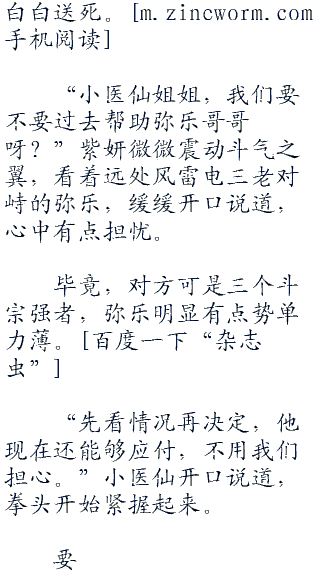 白白送死。[m.zincworm.com
手机阅读]
“小医仙姐姐，我们要
不要过去帮助弥乐哥哥
呀？”紫妍微微震动斗气之
翼，看着远处风雷电三老对
峙的弥乐，缓缓开口说道，
心中有点担忧。
毕竟，对方可是三个斗
宗强者，弥乐明显有点势单
力薄。[百度一下“杂志
虫”]
“先看情况再决定，他
现在还能够应付，不用我们
担心。”小医仙开口说道，
拳头开始紧握起来。
要